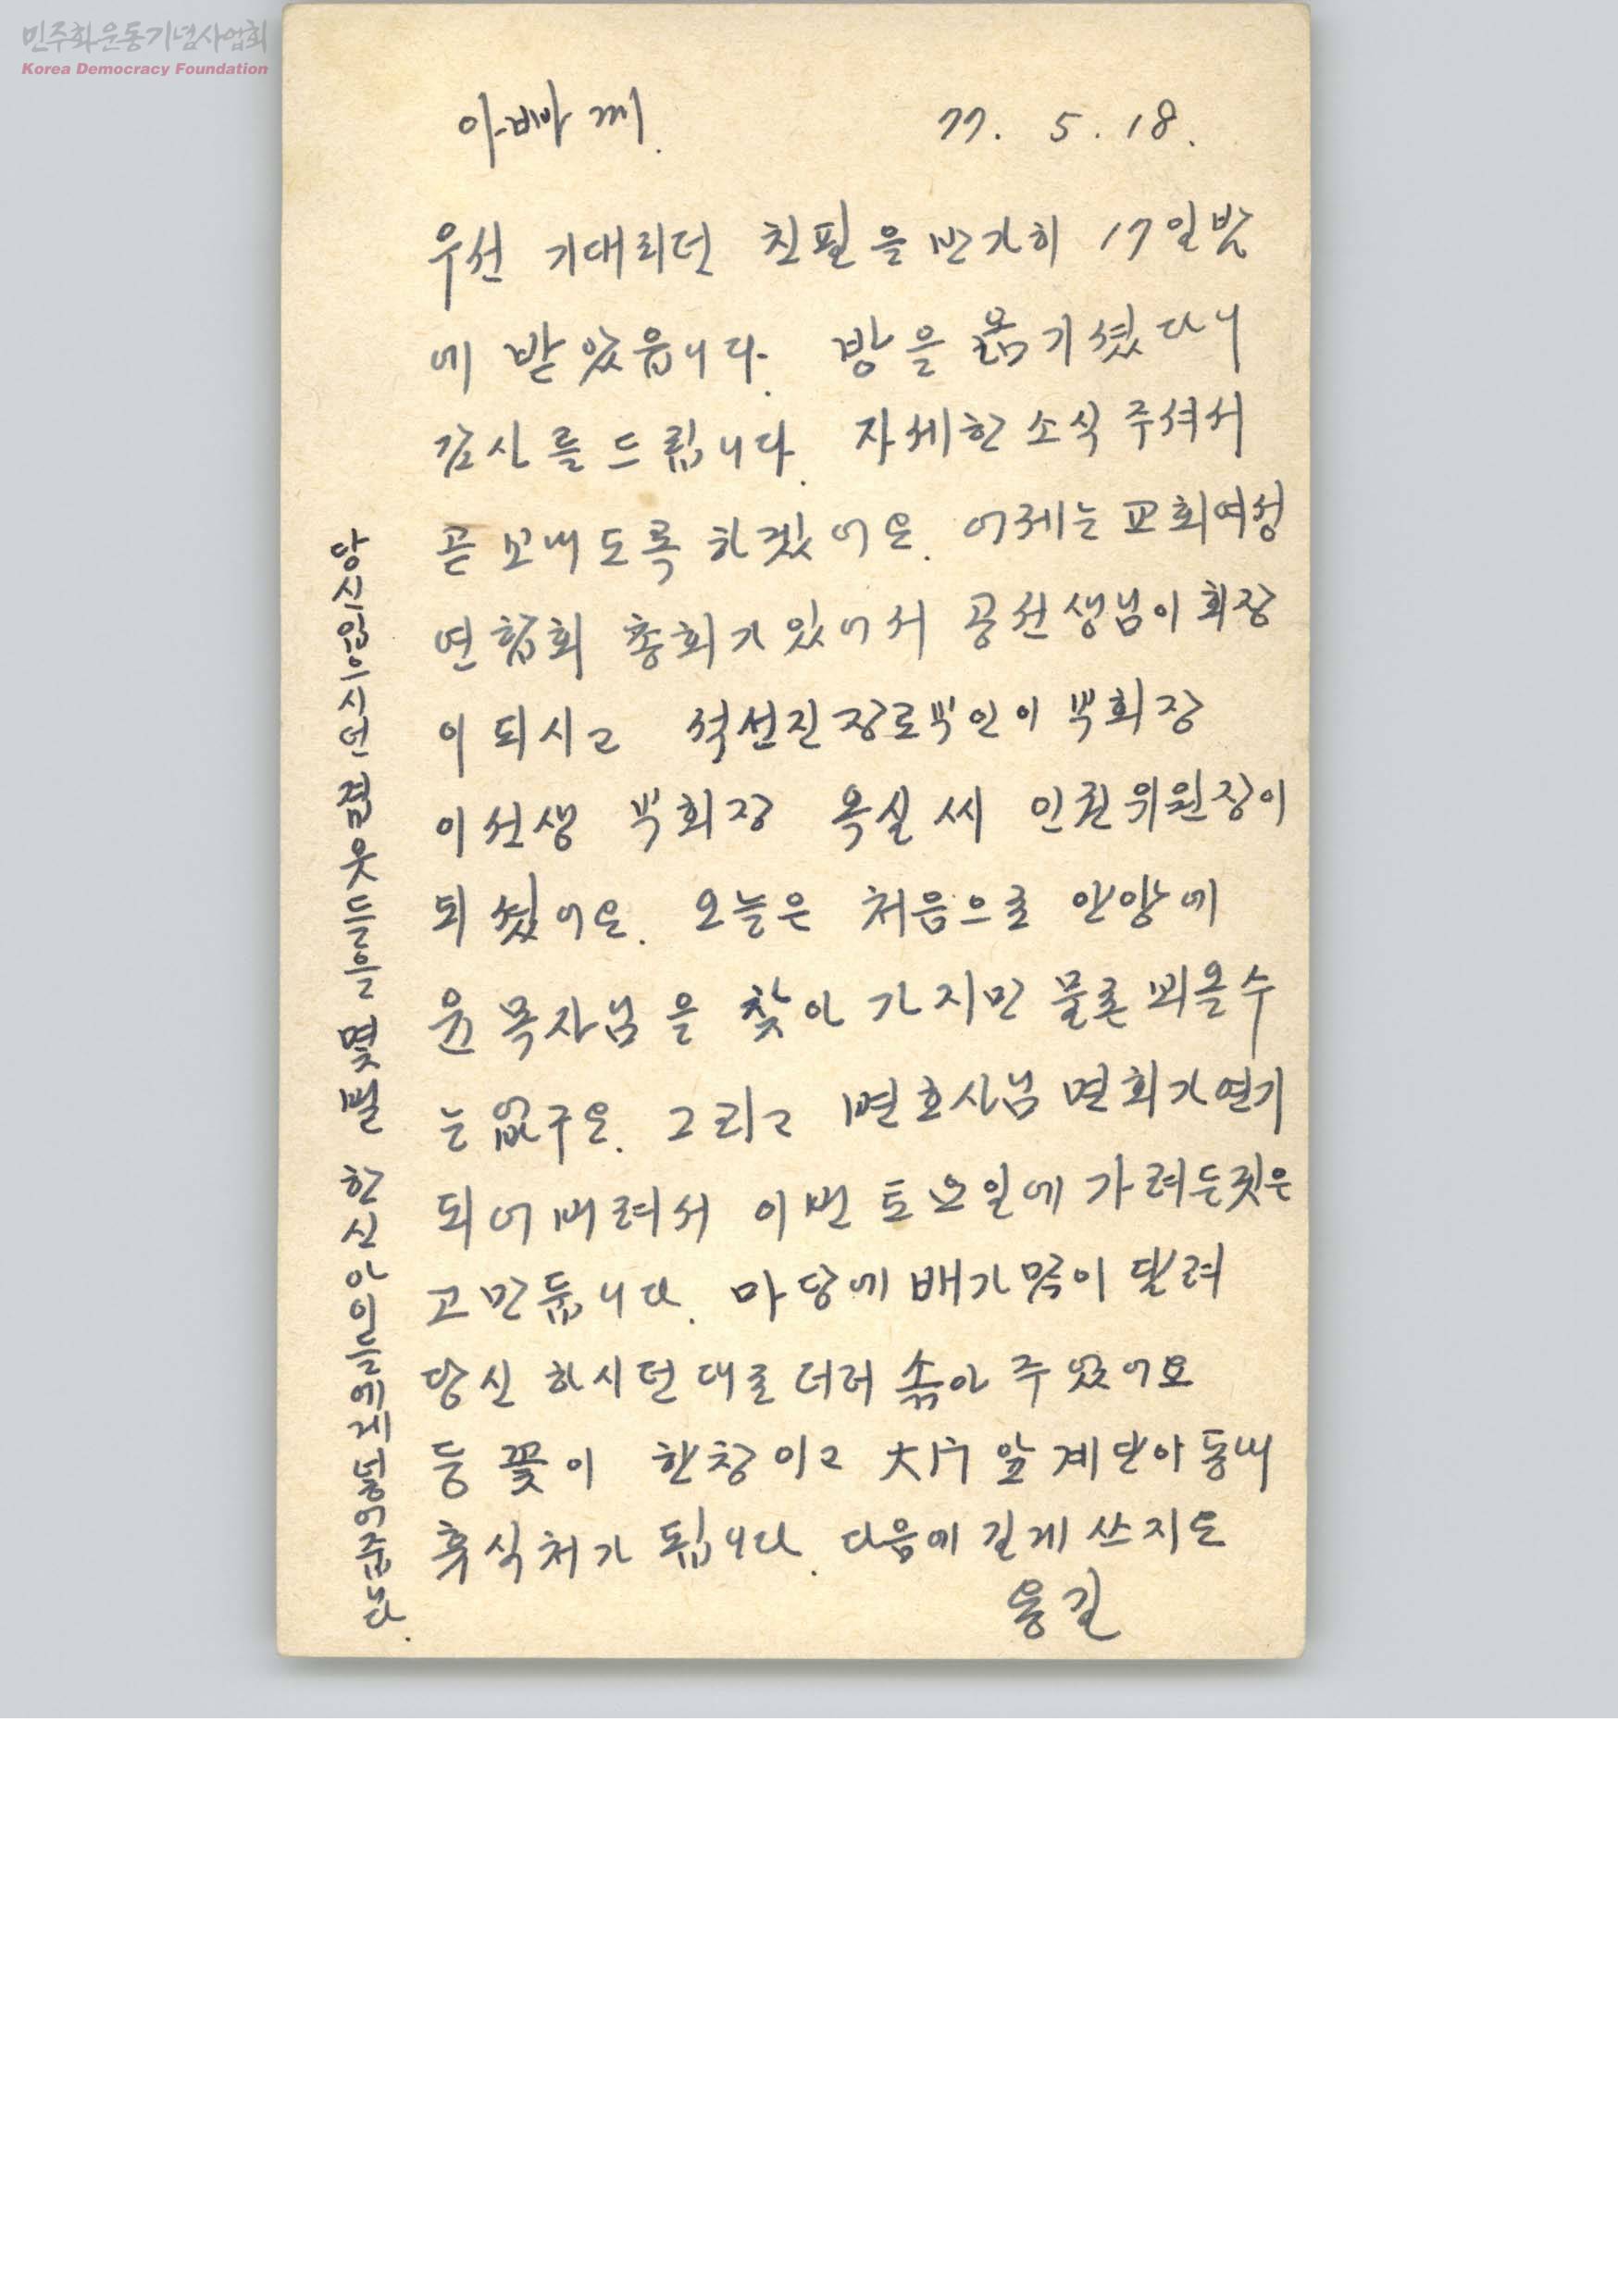 민주화운동기념사업회
Korea Democracy Foundation
아빠께. 77. 5. 18.
우선 기대리던 친필을 반가히 17일밤
에 받았읍니다. 방을 옮기셨다니
감사를 드립니다. 자세한 소식 주셔서
곧 보내도록 하겠어요. 어제는 교회여성
연합회 총회가 있어서 공선생님이 회장
이 되시고 석선진장로부인이 부회장
이선생 부회장 옥실씨 인권위원장이
되셨어요. 오늘은 처음으로 안양에
윤목사님을 찾아가지만 물론 뵈올수
는 없구요. 그리고 변호사님 면회가 연기
되어버려서 이번 토요일에 가려든것은
고만둡니다. 마당에 배가 많이 달려
당신 하시던대로 더러 솎아 주었어요
등꽃이 한창이고 大门 앞 계단아 동내
휴식처가 됩니다. 다음에 길게 쓰지요
용길
당신입으시던 겹옷들을 몇벌 한신 아이들에게 넣어준다.